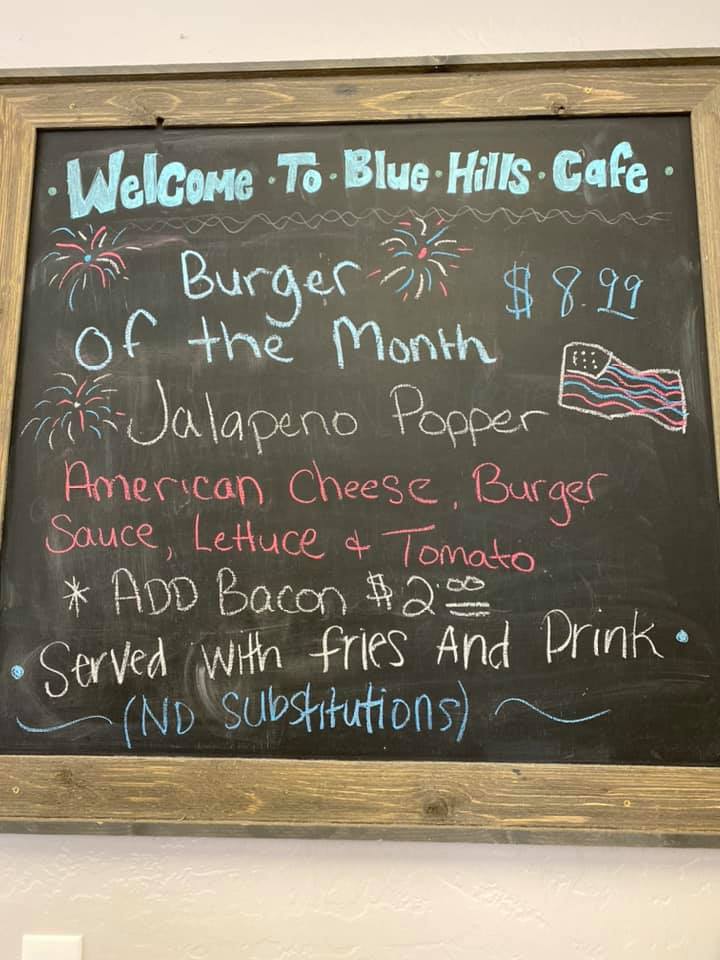 • Welcome • To • Blue • Hills • Cafe •
Burger $8.99
Of the Month
Jalapeno Popper
American Cheese, Burger
Sauce, Lettuce & Tomato
* ADD Bacon $2.00
• Served With fries And Drink •
(No substitutions)